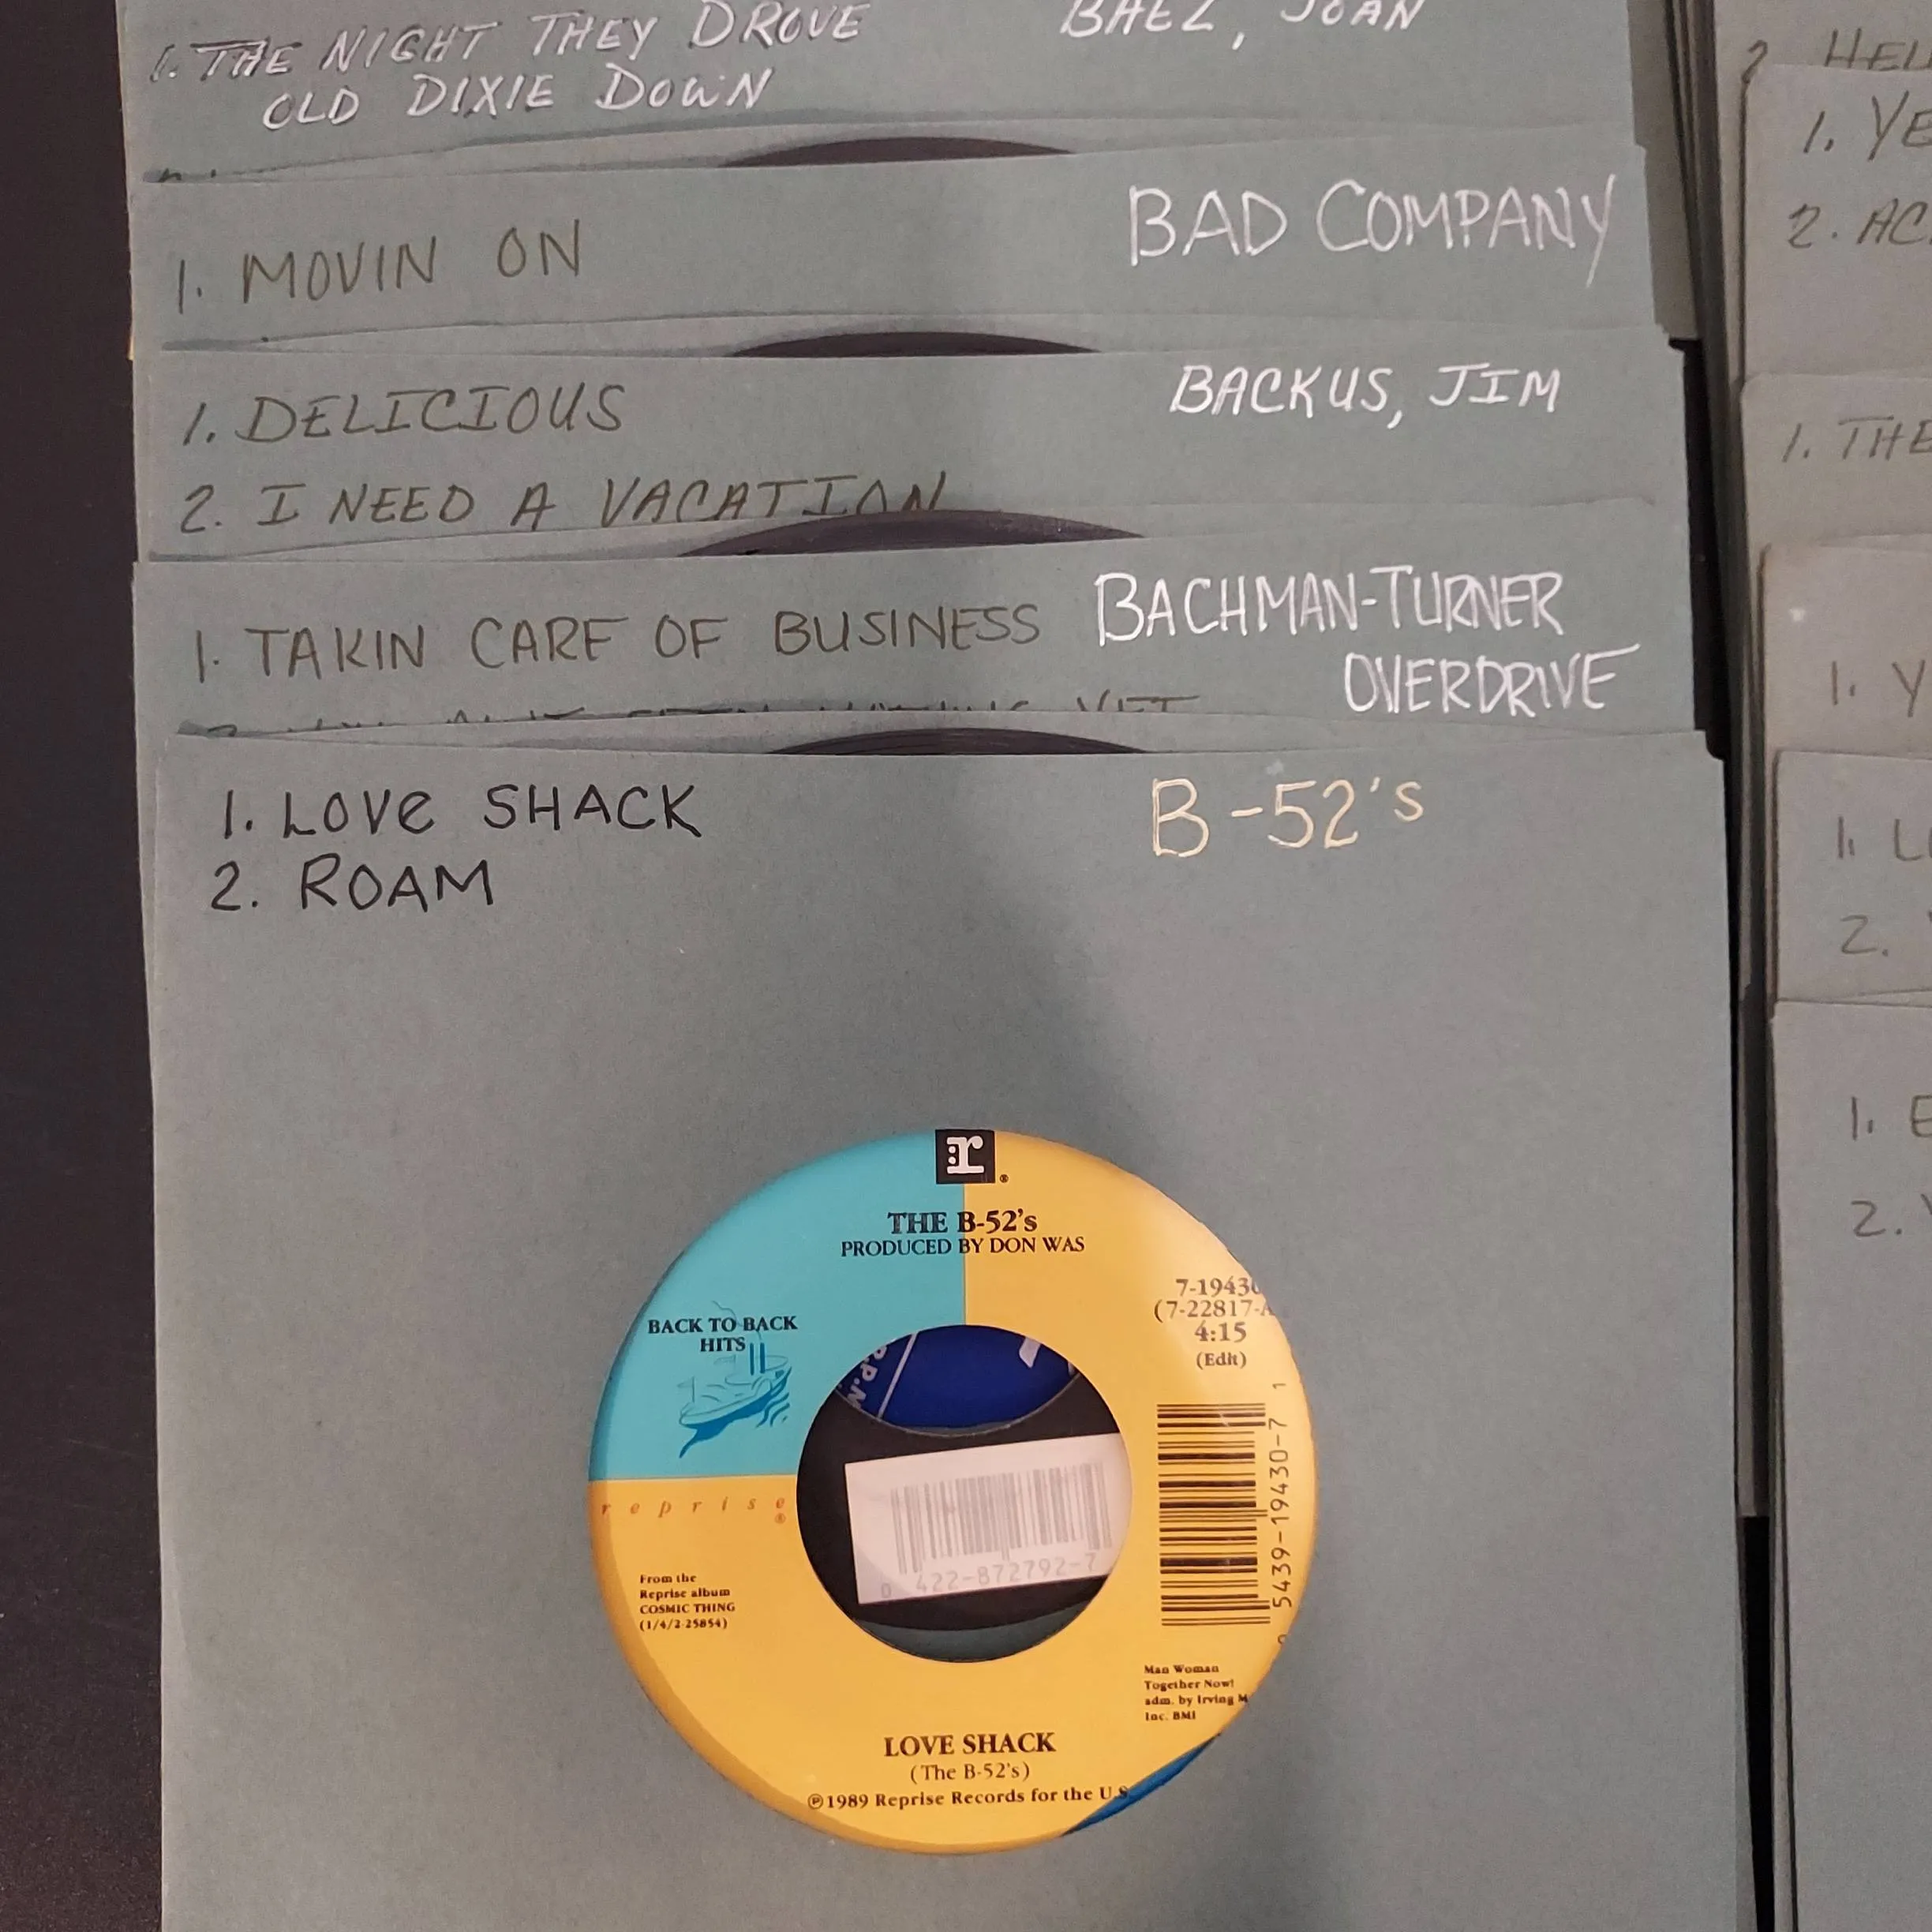 1. THE NIGHT THEY DROVE
OLD DIXIE DOWN
BAEZ, JOAN
1. MOVIN ON
BAD COMPANY
1. DELICIOUS
2. I NEED A VACATION
BACKUS, JIM
1. TAKIN CARE OF BUSINESS
BACHMAN-TURNER
OVERDRIVE
1. LOVE SHACK
2. ROAM
B-52's
r
®
THE B-52's
PRODUCED BY DON WAS
BACK TO BACK
HITS
7-19430
(7-22817-A
4:15
(Edit)
reprise
®
From the
Reprise album
COSMIC THING
(1/4/2-25854)
0 5439-19430-7 1
0 422-872792-7
Man Woman
Together Now!
adm. by Irving M
Inc. BMI
LOVE SHACK
(The B-52's)
℗1989 Reprise Records for the U.S.
2 HEL
1. YE
2. AC
1. THE
1. Y
1. L
2.
1. E
2.